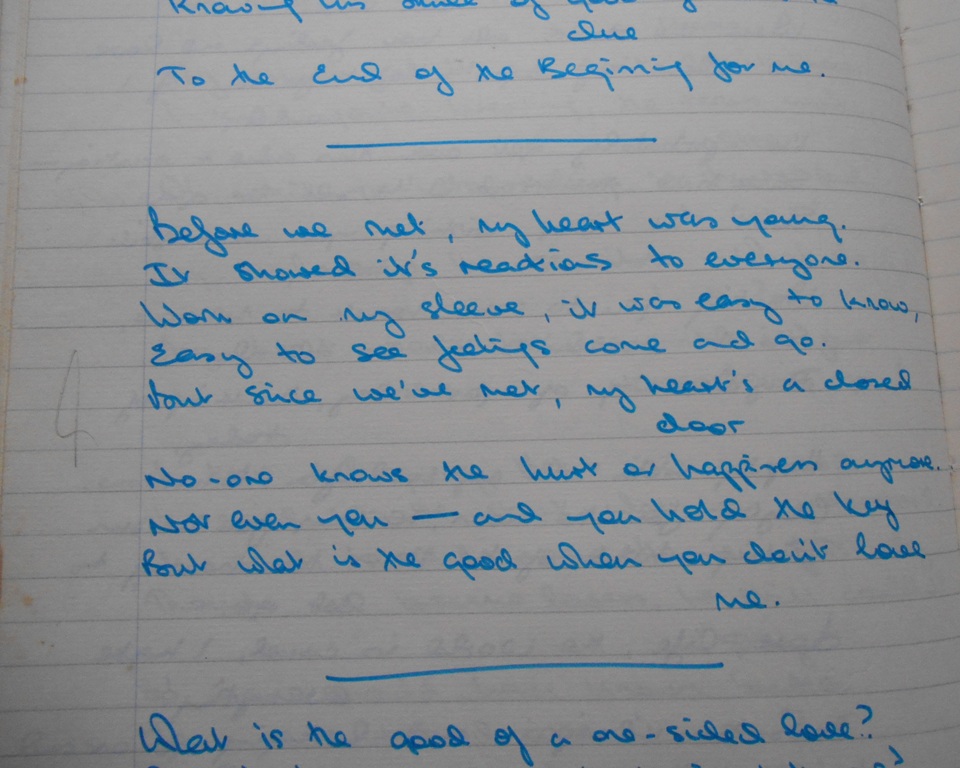 Knowing this
clue
To the End of the Begining for me.
Before we met, my heart was young.
It showed it's reactions to everyone.
Worn on my sleeve, it was easy to know,
Easy to see feelings come and go.
But since we've met, my heart's a closed
door
No-one knows the hurt or happiness anymore.
Not even you — and you hold the key
But what is the good when you don't love
me.
What is the good of a one-sided love?